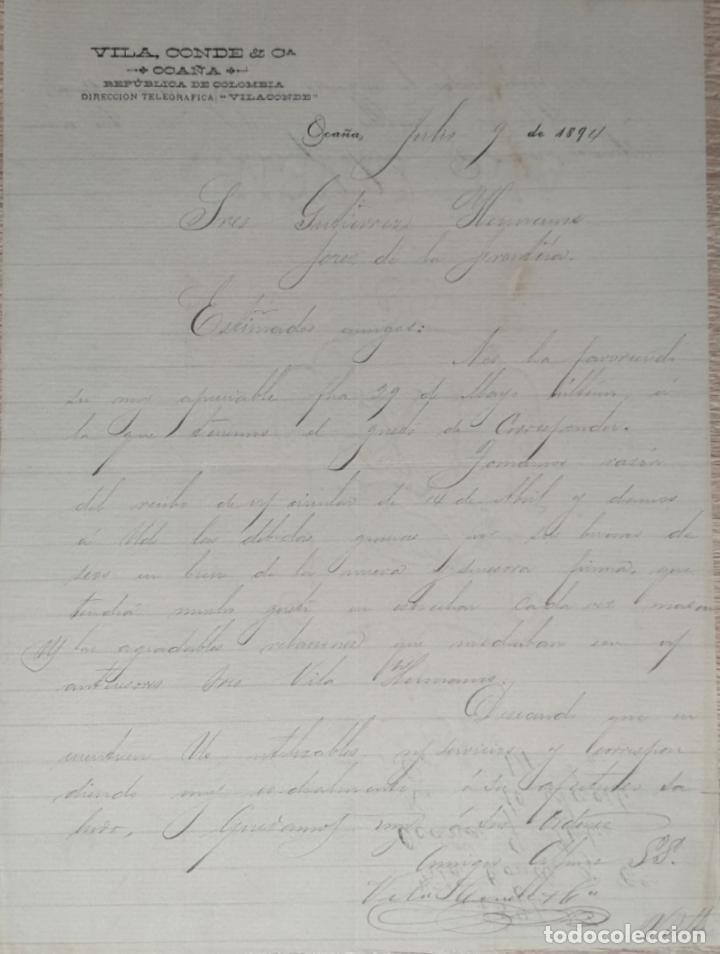 VILA, CONDE & Cª
OCAÑA
REPÚBLICA DE COLOMBIA
DIRECCION TELEGRAFICA: "VILACONDE"
Ocaña, Julio 9 de 1894
Sres Gutierrez Hermanos
Jerez de la Frontera.
Estimados amigos:
Nos ha favorecido
su muy apreciable fha 29 de Mayo último, á
la que tenemos el gusto de Corresponder.
Tomamos razón
del recibo de circular de 14 de Abril y damos
á Uds las debidas gracias sus buenos de
seos en bien de la nueva y sucesora firma, que
tendrá mucho gusto en estrechar cada vez mas
las agradables relaciones que mediaban con
antecesores Sres Vila Hermanos.
Deseando que
encuentren Uds utilizables servicios, y Correspon
diendo muy cordialmente á su afectuoso sa
ludo, Quedamos
Amigos SS.
Vila Conde & Ca
todocoleccion.net